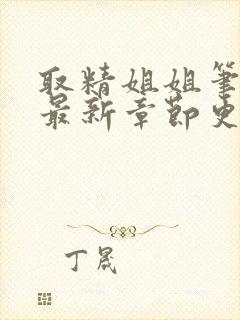 取精姐姐笔
最新章节史
丁晟